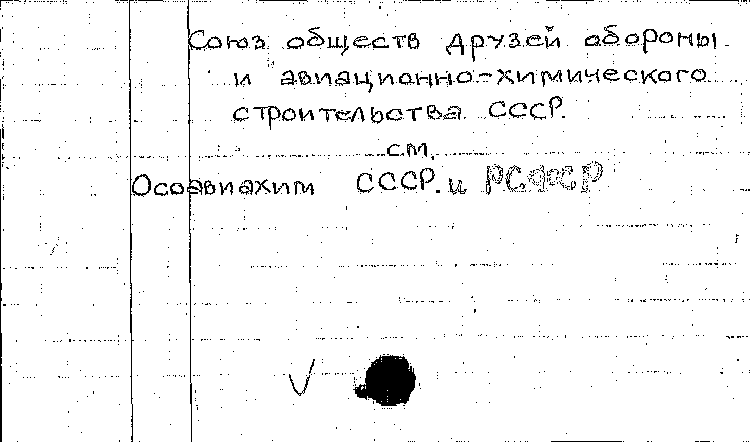 Союз обществ друзей обороны
и авиационно-химического
строительства СССР.
см.
Осоавиахим СССР. и РСФСР